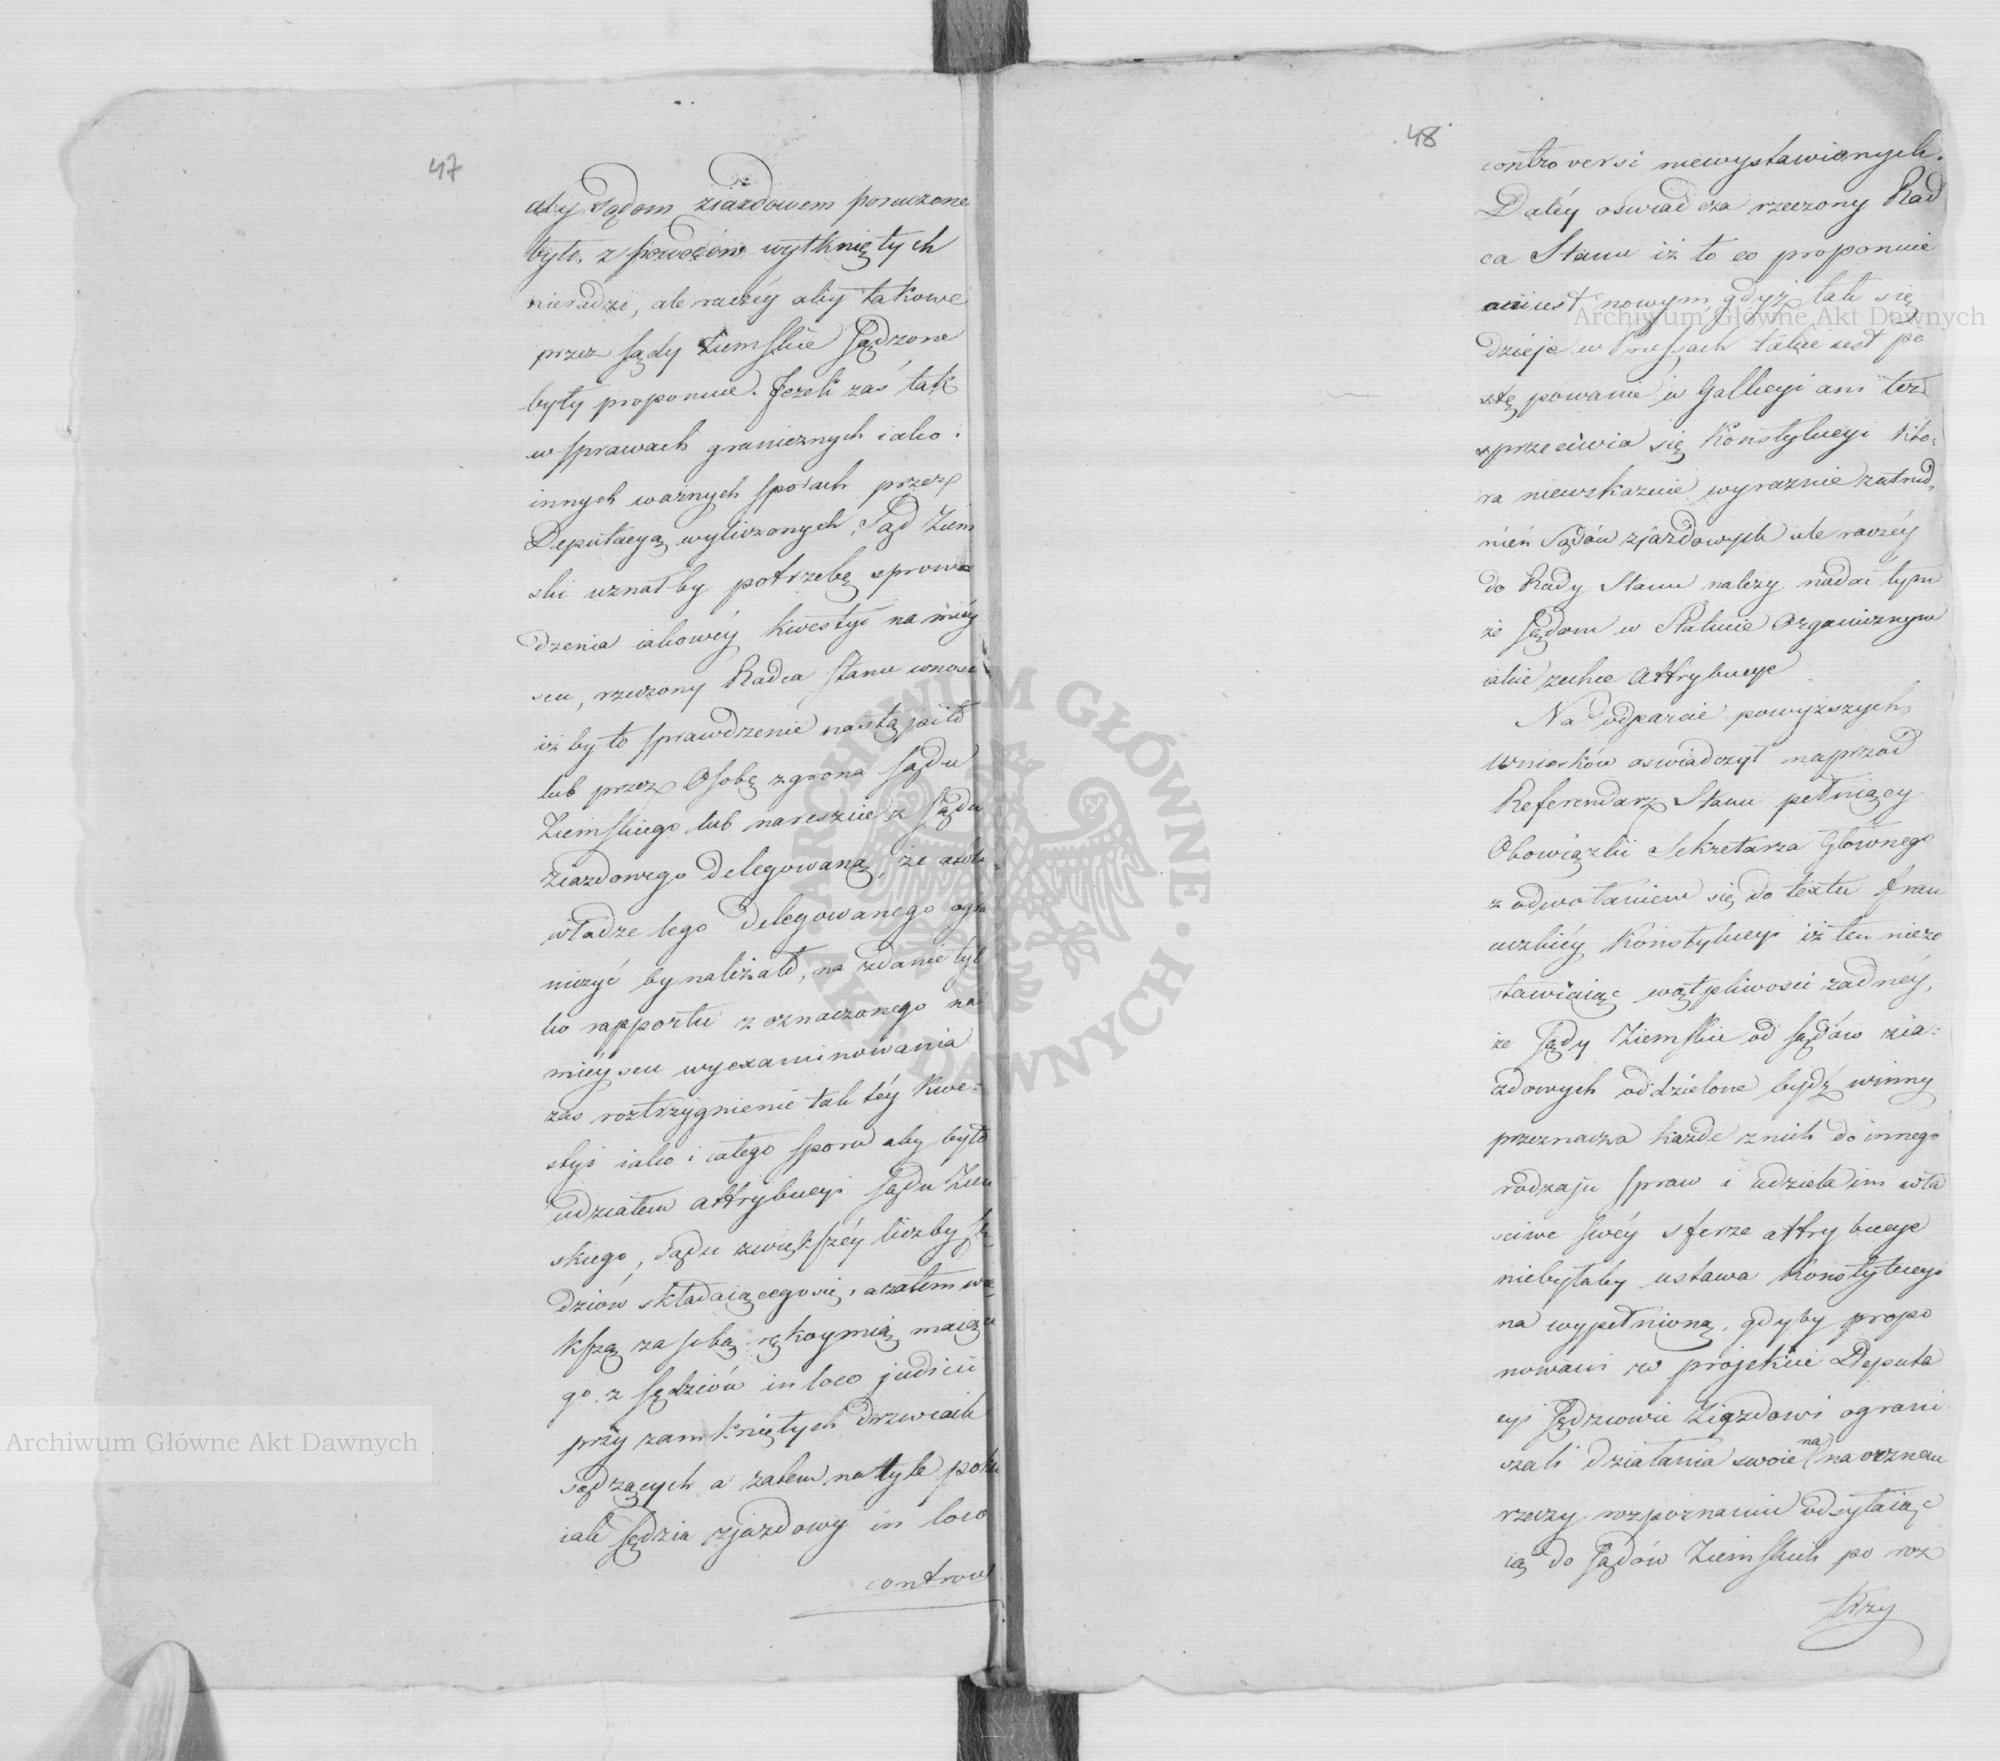 47
aby Sądom ziazdowem poruczone
było, z powodów wytkniętych
nieradzi, ale raczéy aby takowe
przez sądy Ziemskie sądzone
były proponuie. Jeżeli zaś tak
w sprawach granicznych iako i
innych ważnych sporach przez
Deputacyą wyliczonych, Sąd Ziem
ski uznałby potrzebę sprowa
dzenia iakowéy kwestyi na miéy
scu, rzeczony Radca Stanu wnosi
iż by to sprawdzenie nastąpiło
lub przez Osobę z grona Sądu
Ziemskiego lub nareszcie z Sądu
ziazdowego delegowaną, że
władze tego delegowanego ogra
niczyć by należało, na zdanie tyl
ko rapportu z oznaczonego na
mieyscu wyexaminowania
zas roztrzygnienie tak téy kwe=
styi iako i całego sporu aby było
udziałem attrybucyi Sądu Ziem
skiego, Sądu z większéy liczby Sę
dziów składaiącego się, a zatem wię
kszą za sobą rękoymią maiące
go z Sędziów in loco judicii
przy zamkniętych drzwiach
sądzących a zatem natyle poku
iak Sędzia zjazdowy in loco
controv
48
controversi niewystawionych.
Daléy oswiadcza rzeczony Rad
ca Stanu iż to co proponuie
niiest nowym gdyż tak się
dzieje w Prussach takie iest po
stępowanie w Gallicyi ani też
sprzeciwia się Konstytucyi któ=
ra niewskazuie wyraznie zatrud=
nień Sądów zjazdowych ale raczéy
do Rady Stanu należy nadać tym
że Sądom w Statucie Organicznym
iakie zechce Attrybucye
Na odparcie powyższych
wniosków oswiadczył naprzód
Referendarz Stanu pełniący
Obowiązki Sekretarza Głównego
z odwołaniem się do textu fran
cuzkiéy Konstytucyi iż ten niezo
stawiaiąc wątpliwosci żadnéy,
że Sądy Ziemskie od Sądów zia=
zdowych oddzielone bydź winny
przeznacza każde z nich do innego
rodzaju spraw i udziela im wła
sciwe swéy sferze attrybucye
niebyłaby ustawa Konstytucyi
na wypełnioną, gdyby propo
nowani w projekcie Deputa
cyi Sędziowie Ziazdowi ograni
czali działania swoie na na oczném
rzeczy rozpoznaniu odsyłaiąc
ią do Sądów Ziemskich po roz
trzy
Archiwum Główne Akt Dawnych
Archiwum Główne Akt Dawnych
ARCHIWUM GŁÓWNE · AKT DAWNYCH ·